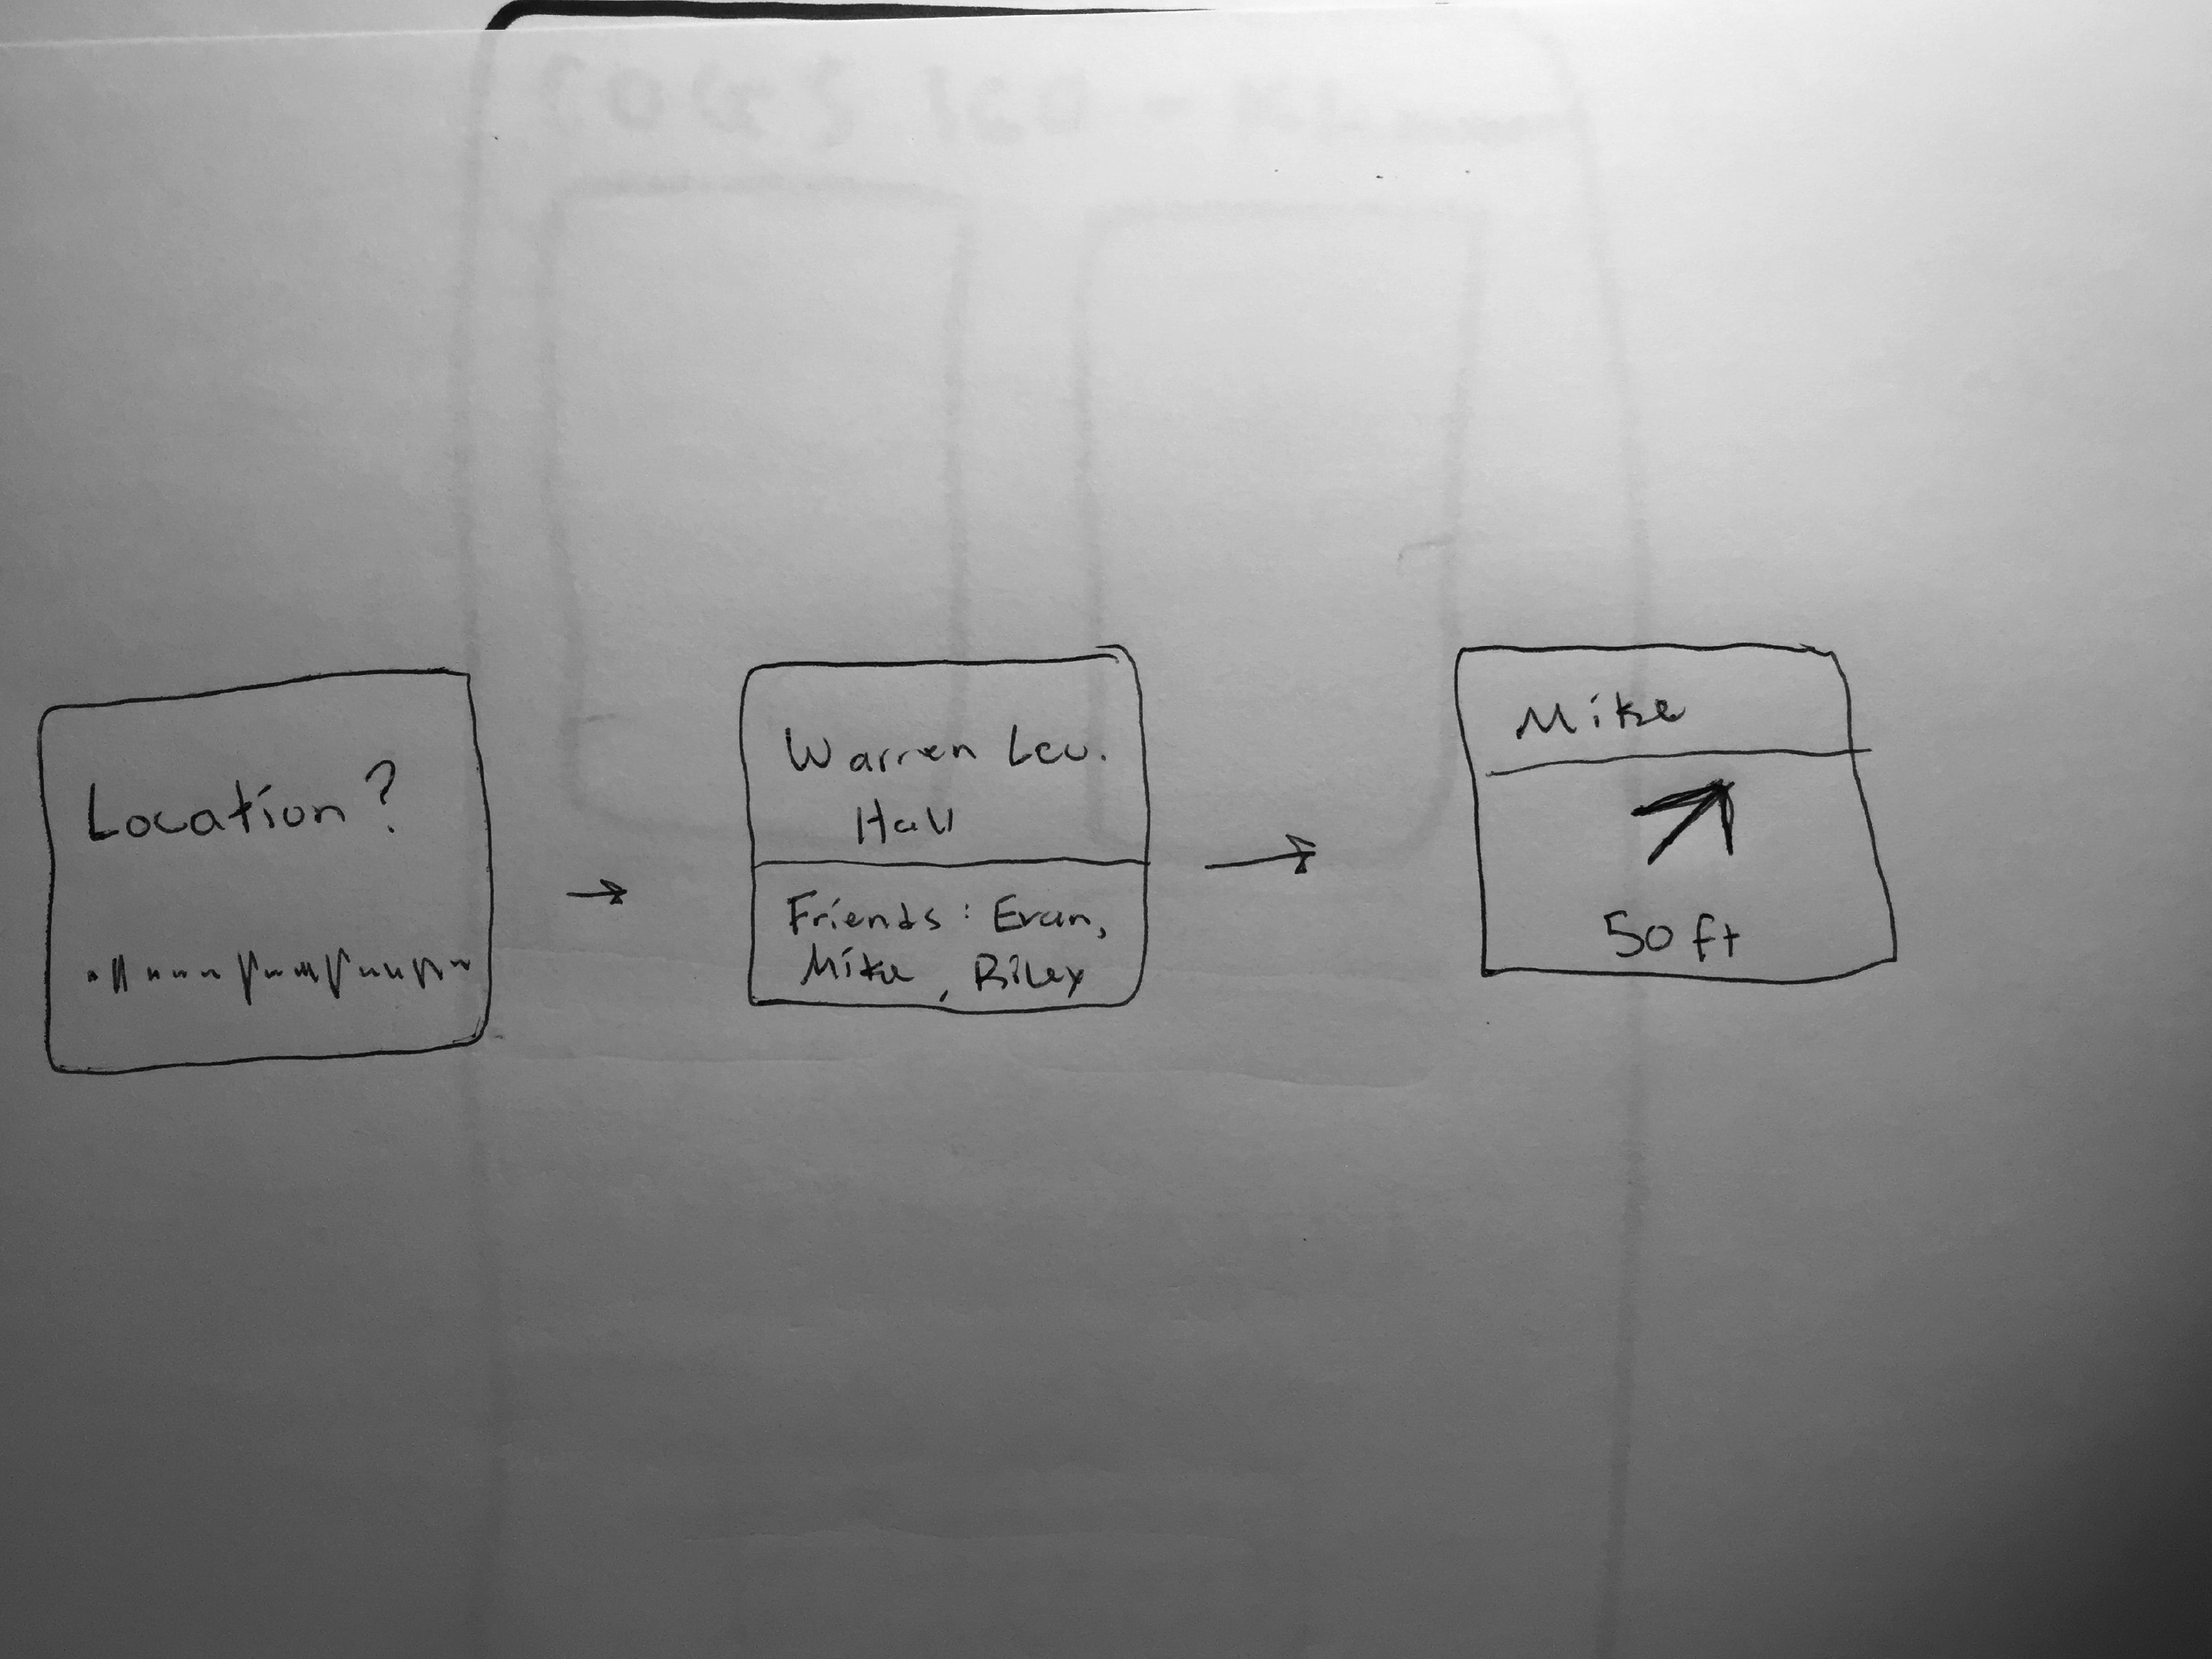 Location?
Warren Lec.
Hall
Friends: Evan,
Mike, Riley
Mike
50 ft